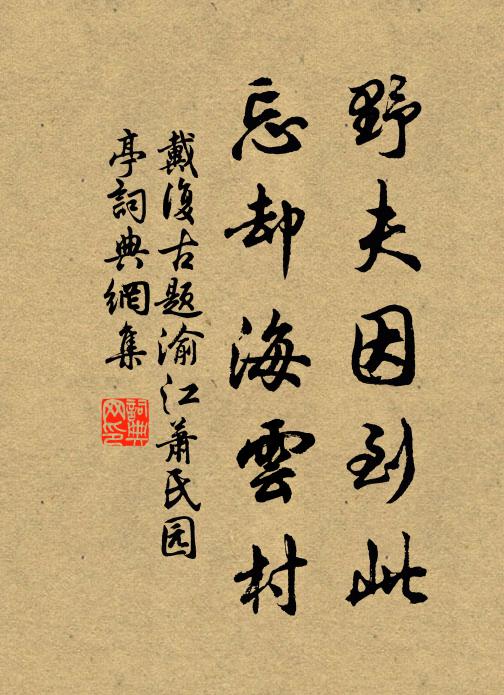 野夫因到此
忘却海雲村
戴復古題渝江萧民园
亭詞典網集
詞典
网印